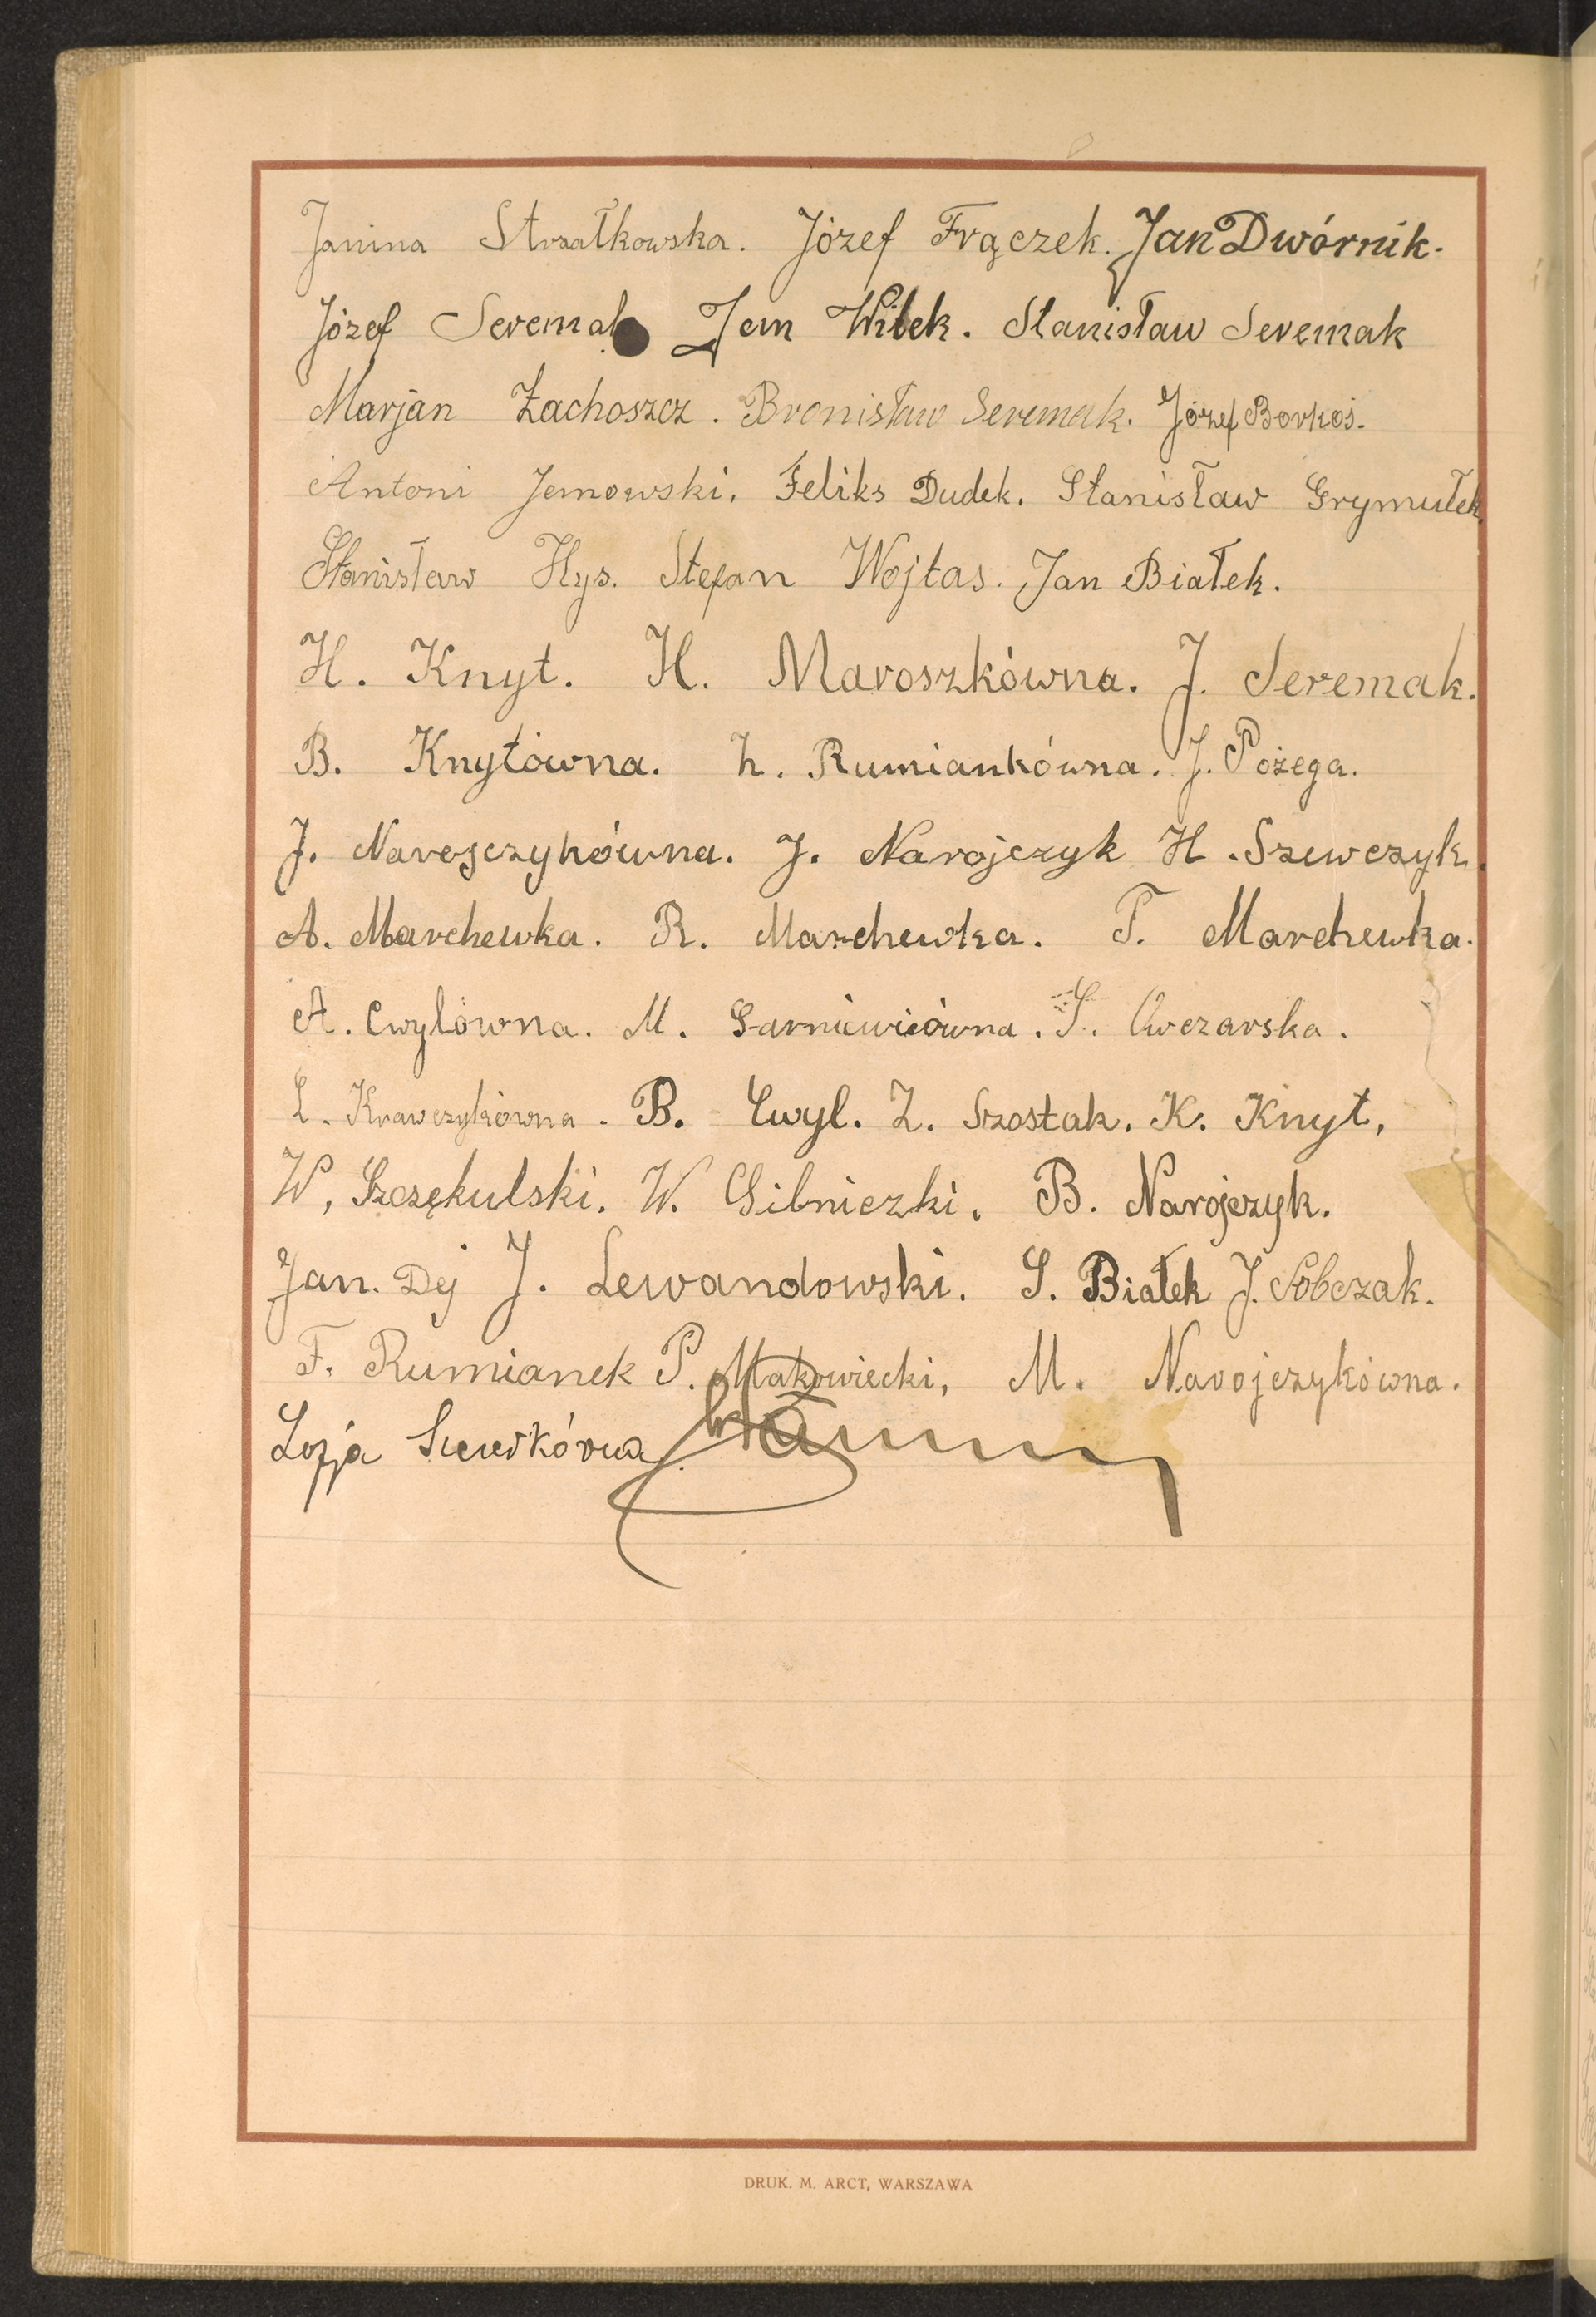 Janina Strzałkowska. Józef Frączek. Jan Dwórnik.
Józef Seremak Jan Wilek. Stanisław Seremak
Marjan Zachoszcz. Bronisław Seremak. Józef Borkoś.
Antoni Janowski. Feliks Dudek. Stanisław Grymułek.
Stanisław Hys. Stefan Wojtas. Jan Białek.
H. Knyt. H. Maroszkówna. J. Seremak.
B. Knytówna. h. Rumiankówna. J. Pożega.
J. Narojczykówna. J. Narojczyk H. Szewczyk.
A. Marchewka. R. Marchewka. T. Marchewka.
A. Cwylówna. M. Garniewiczówna. S. Owczarska.
L. Krawczykówna. B. Cwyl. Z. Szostak. K. Knyt,
W. Szczękulski. W. Glibniczki. B. Narojczyk.
Jan. Dej J. Lewandowski. S. Białek J. Sobczak.
F. Rumianek P. Makowiecki, M. Narojczykówna.
Zofja
DRUK. M. ARCT, WARSZAWA